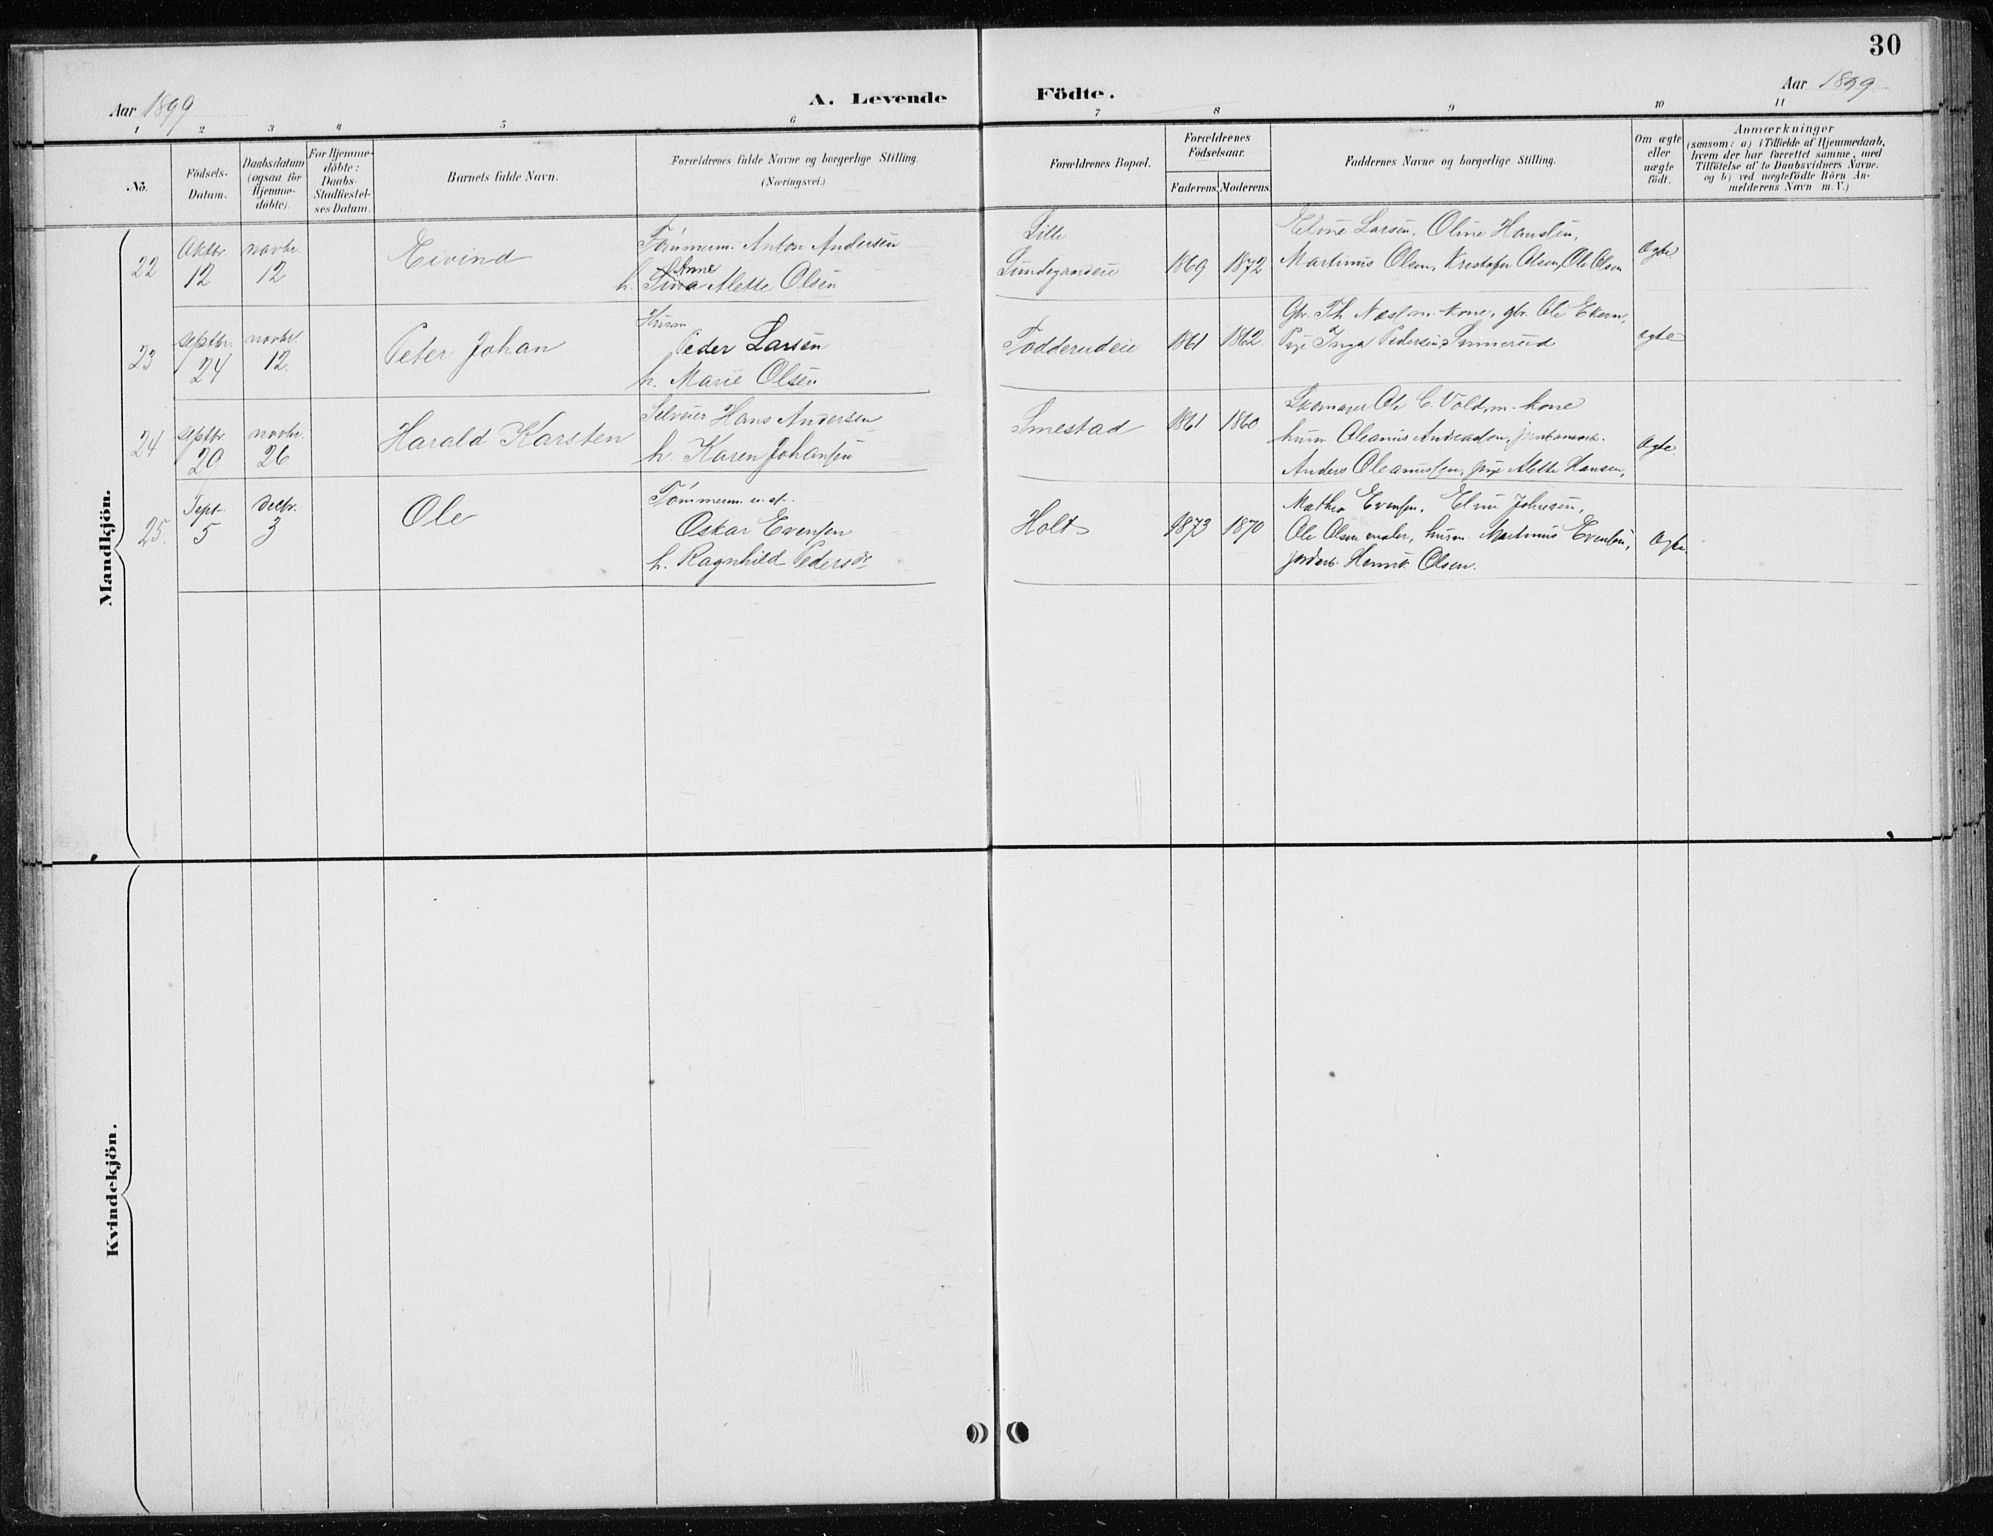 30
Aar 1899
A. Levende Födte.
Aar 1899
1 2 3 4 5 6 7 8 9 10 11
No.
Födsels-Datum.
Daabsdatum (ogsaa for Hjemme-döbte).
For Hjemme-döbte: Daabs-Stadfæstel-ses Datum.
Barnets fulde Navn.
Forældrenes fulde Navne og borgerlige Stilling.
(Næringsvei.)
Forældrenes Bopæl.
Forældrenes Födselsaar.
Faderens. Moderens.
Faddernes Navne og borgerlige Stilling.
Om ægte eller uægte födt.
Anmærkninger
(saasom: a) i Tilfælde af Hjemmedaab,
hvem der har forrettet samme, med
Tilföielse af to Daabsvidners Navne.
og b) ved uægtefödte Börn An-
melderens Navn m. V.)
Mandkjön.
22
Oktbr. 12
novbr. 12
Eivind
Tömmerm. Anton Andersen
h. Anne Alette Olsen
Lille
Lundegaardeie
1869 1872
Eline Larsen, Oline Hansen,
Martinus Olsen, Kristofer Olsen, Ole Olsen
ægte
23
septbr. 24
novbr. 12.
Peter Johan
Husm.
Peder Larsen
h. Marie Olsen
Fodderudeie
1861 1862.
Gbr. Th. Næss m. kone, gbr. Ole Ekern,
Pige Inga Pedersen
ægte
24
septbr. 29
novbr. 26
Harald Karsten
Selveier Hans Andersen
h. Karen Johansen
Smestad
1861 1860
Skomager Ole C. Vold m. kone
husm. Oleanus Andreassen,
Anders Oleanussen, pige Alette Hansen,
ægte
25.
Sept. 5
decbr. 3
Ole
Tömmerm.
Oskar Evensen
h. Ragnhild Pedersdr.
Holt
1873 1870
Mathea Evensen, Eline Johnsen,
Ole Olsen maler, husm. Martinus Evensen,
Olsen.
ægte
Kvindekjön.